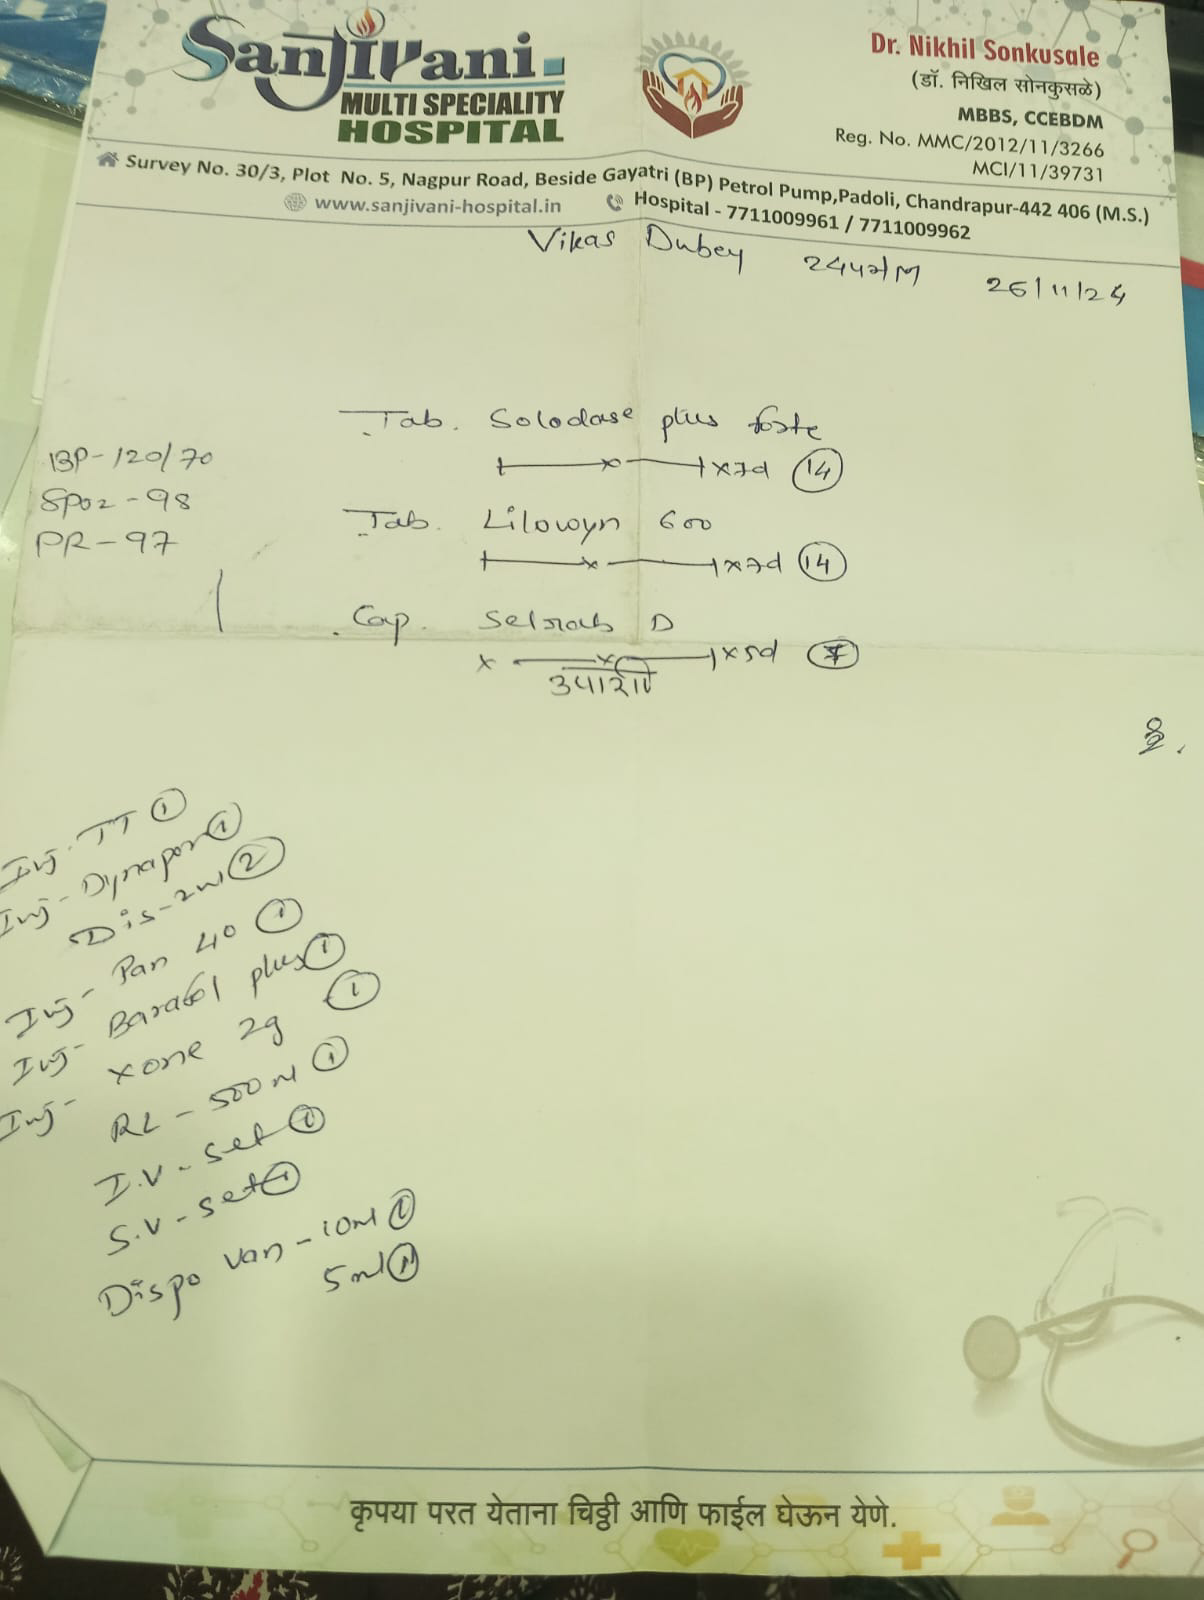 Sanjivani
MULTI SPECIALITY
HOSPITAL
Dr. Nikhil Sonkusale
(डॉ. निखिल सोनकुसळे)
MBBS, CCEBDM
Reg. No. MMC/2012/11/3266
MCI/11/39731
Survey No. 30/3, Plot No. 5, Nagpur Road, Beside Gayatri (BP) Petrol Pump,Padoli, Chandrapur-442 406 (M.S.)
www.sanjivani-hospital.in Hospital - 7711009961 / 7711009962
Vikas Dubey 24yr/M 26/11/24
Tab. Solodase plus forte
x7d 14
BP-120/70
SPO2-98
PR-97
Tab. 600
x7d 14
Cap. D
x x x5d
Inj. TT 1
Inj- 1
Dis-2ml 2
Inj- Pan 40 1
Inj- plus 1
Inj- xone 2g 1
RL - 500ml 1
I.V - set 1
S.V - set 1
Dispo van - 10ml 1
5ml 1
कृपया परत येताना चिठ्ठी आणि फाईल घेऊन येणे.